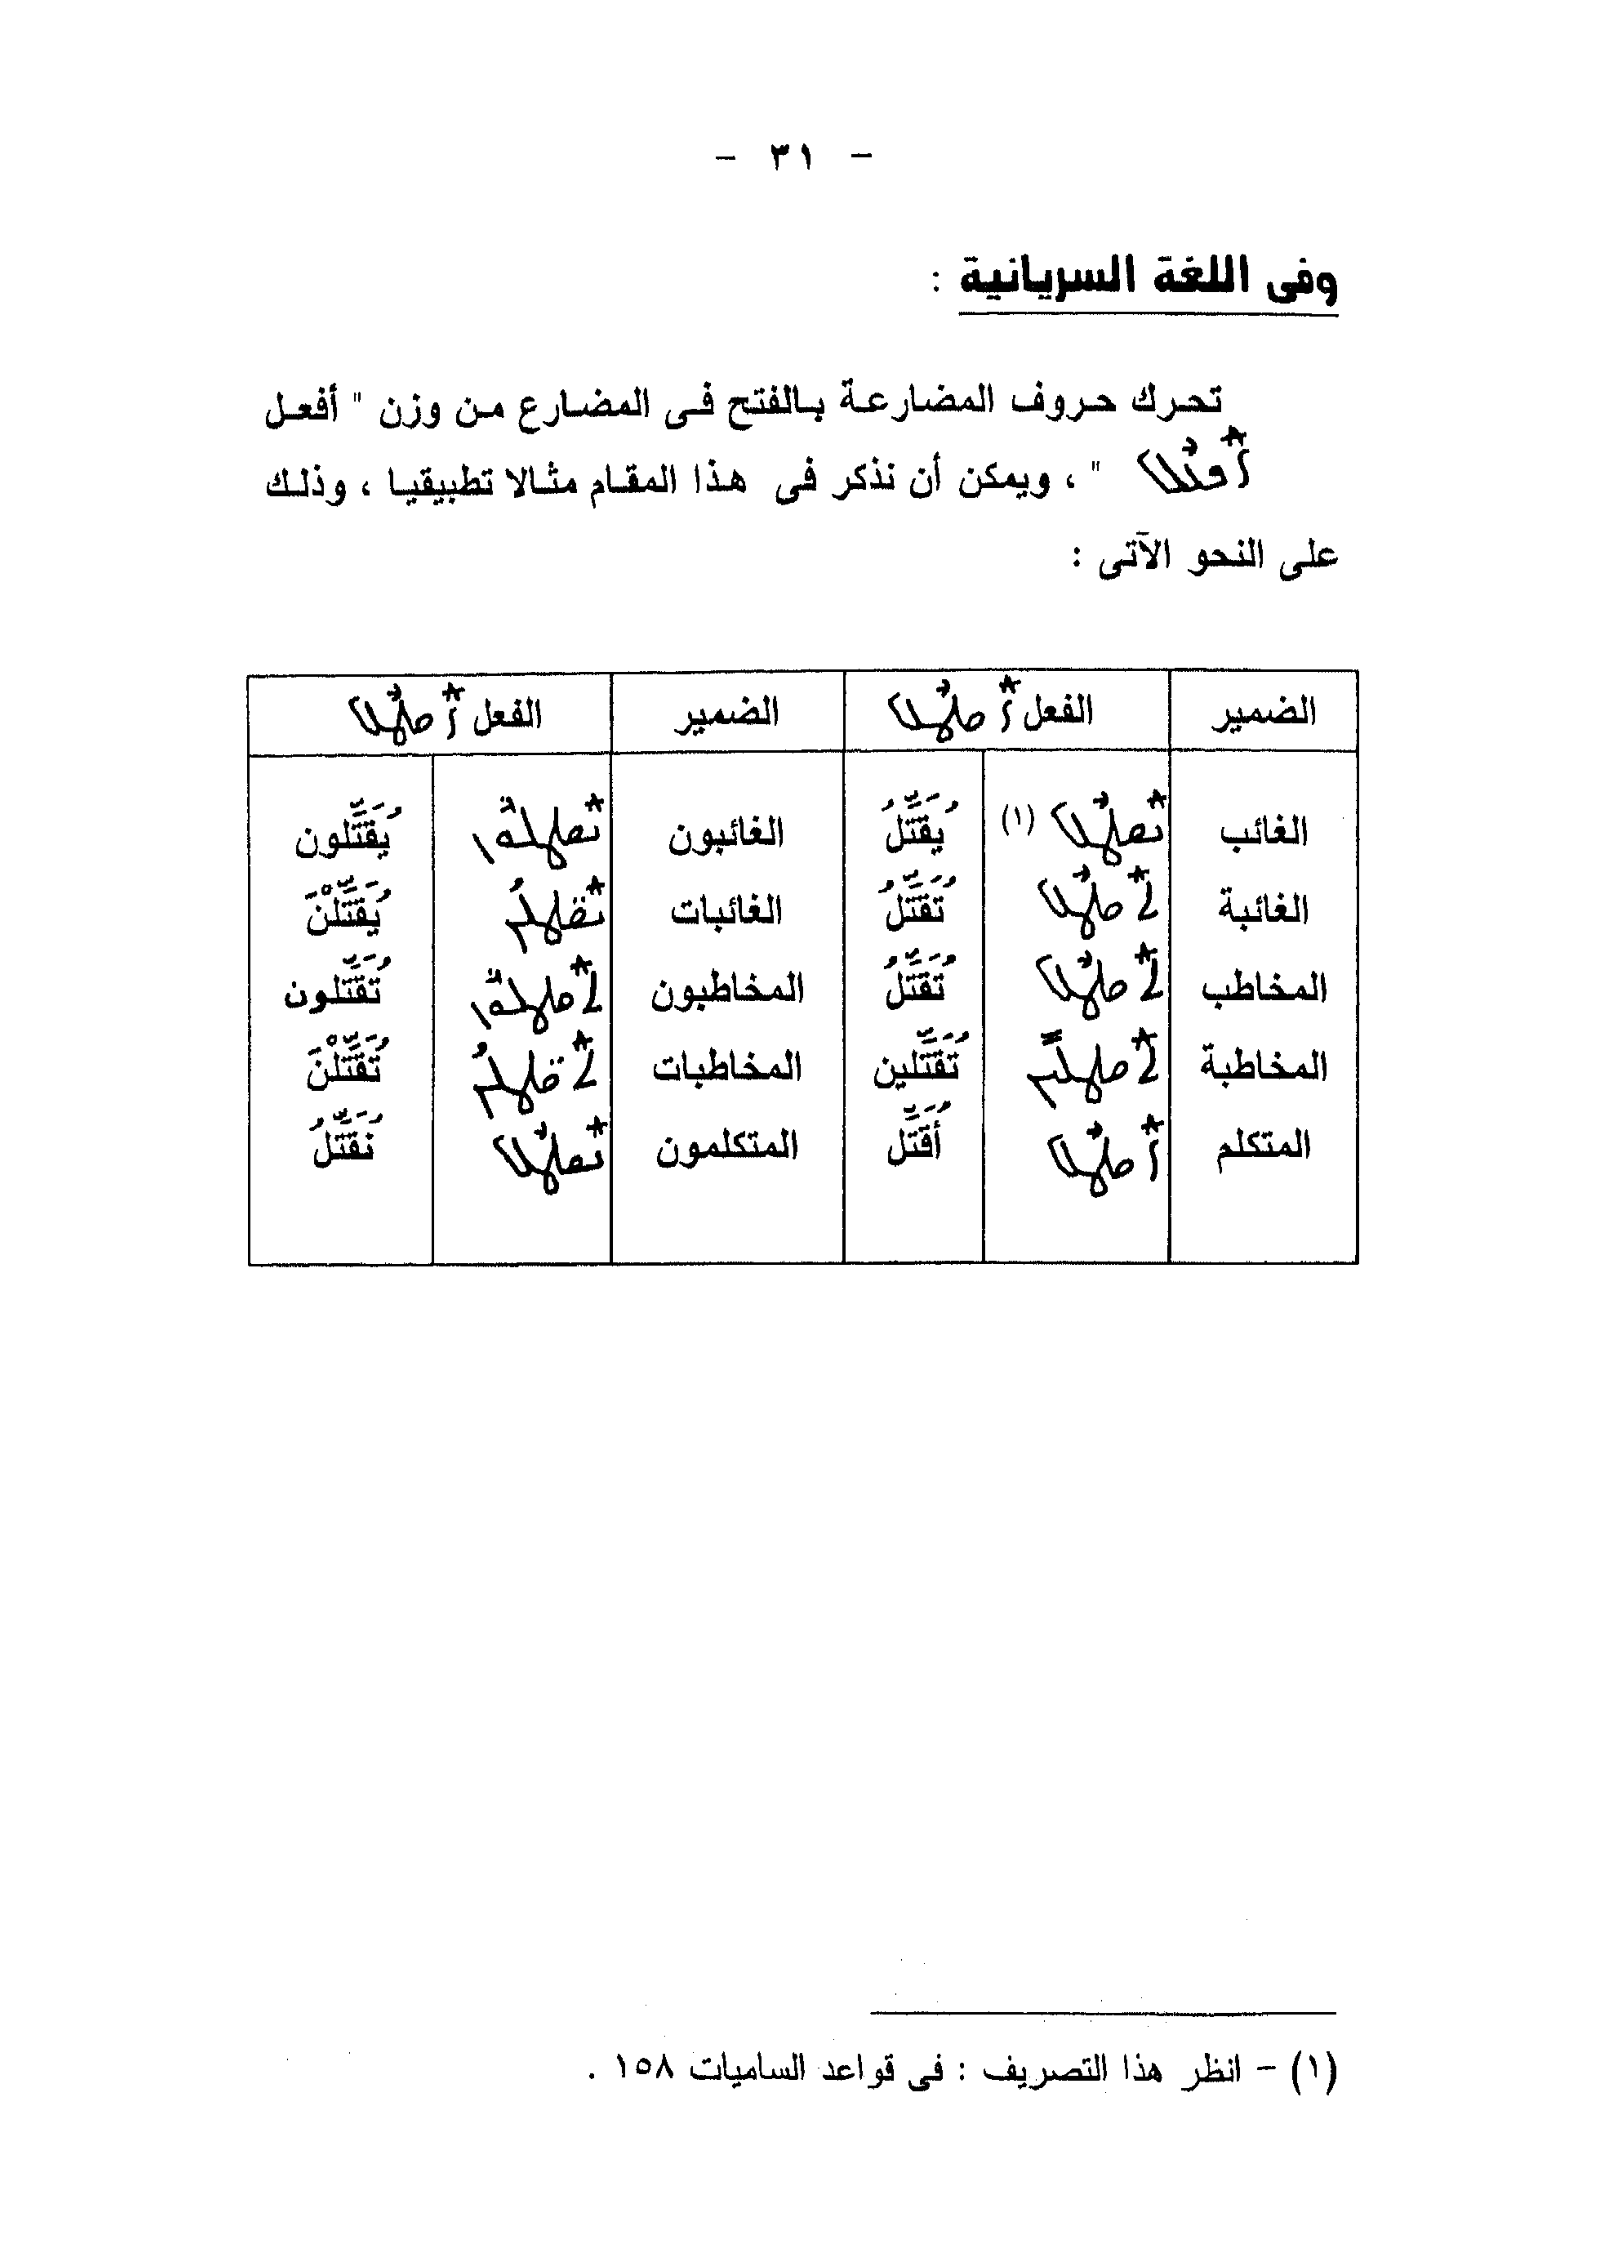 - ٣١ -
وفى اللغة السريانية :
تحرك حروف المضارعة بالفتح فى المضارع من وزن " أفعل
ܐܰܦܥܶܠ " ، ويمكن أن نذكر فى هذا المقام مثالا تطبيقيا ، وذلك
على النحو الآتى :
الضمير الفعل ܐܰܩܛܶܠ الضمير الفعل ܐܰܩܛܶܠ
الغائب ܢܰܩܛܶܠ (١) يُقَتِّلُ الغائبون ܢܰܩܛܠܽܘܢ يُقَتِّلون
الغائبة ܬܰܩܛܶܠ تُقَتِّلُ الغائبات ܢܰܩ̈ܛܠܳܢ يُقَتِّلْنَ
المخاطب ܬܰܩܛܶܠ تُقَتِّلُ المخاطبون ܬܰܩܛܠܽܘܢ تُقَتِّلون
المخاطبة ܬܰܩܛܠܺܝܢ تُقَتِّلين المخاطبات ܬܰܩ̈ܛܠܳܢ تُقَتِّلْنَ
المتكلم ܐܰܩܛܶܠ أُقَتِّل المتكلمون ܢܰܩܛܶܠ نُقَتِّلُ
(١) - انظر هذا التصريف : فى قواعد الساميات ١٥٨ .